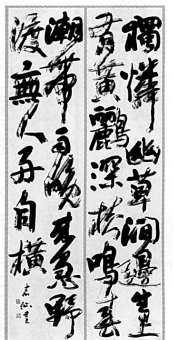 獨憐幽草澗邊生
上有黃鸝深樹鳴春
潮帶雨晚來急野
渡無人舟自橫